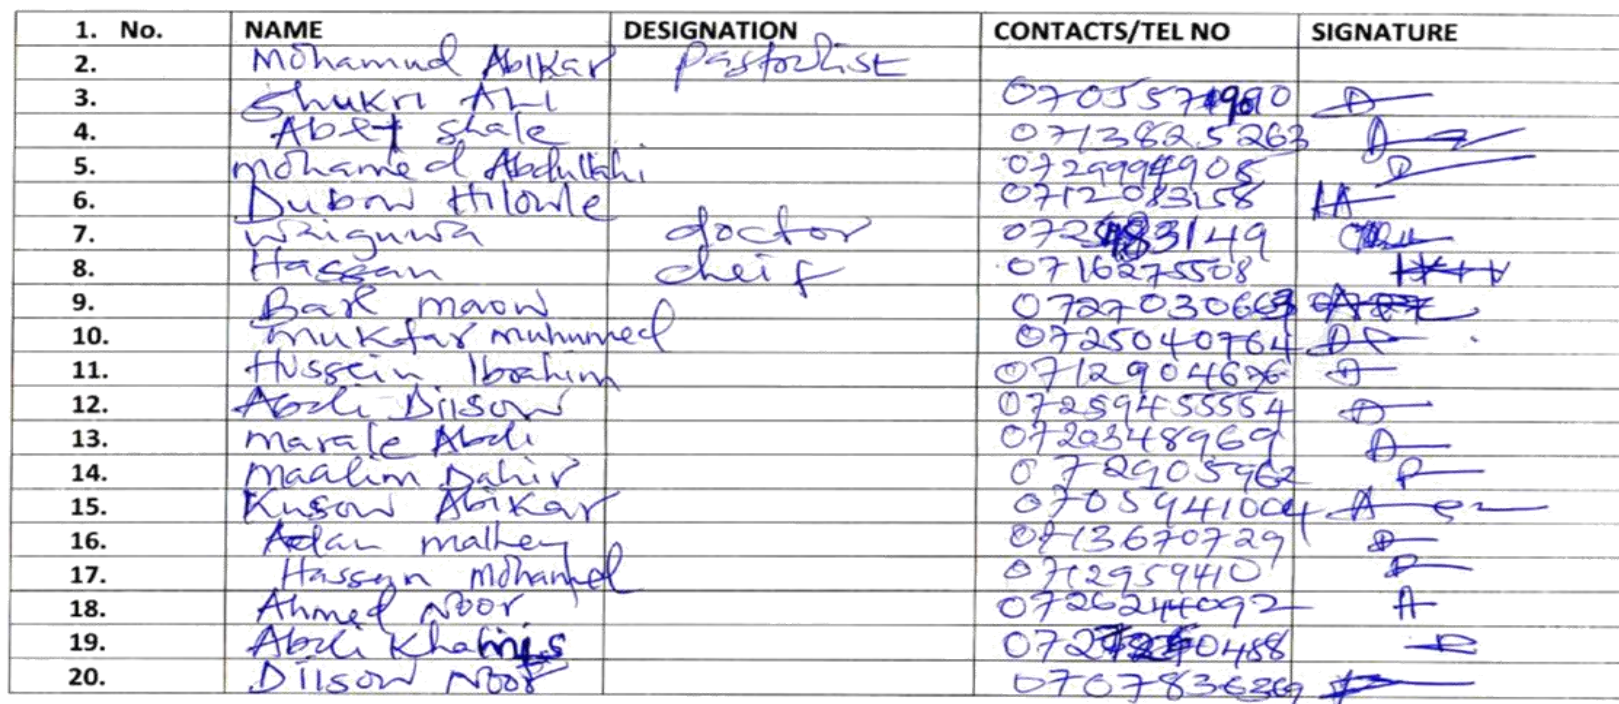 1. No. NAME DESIGNATION CONTACTS/TEL NO SIGNATURE
2. Mohamud Abikar Pastorlist
3. Shukri ALI
4. Abet shale 0713825263
5. mohamed Abdullahi 0729994905
6. Dubow Hilowle 0712083158
7. doctor
8. Hassan cheif 0716275508
9. Bare maow
10. muktar muhumed 0725040764
11. Hussein Ibrahim
12. Abdi Diisow 07259455554
13. marale Abdi 0720348969
14. maalim Dahir 072905962
15. Kusow Abikar 0705941004
16. Adan malhey 0713670729
17. Hassan mohamed 0712959410
18. Ahmed Noor 0726244092
19. Abdi Khamis
20. Diisow Noor 0707836369